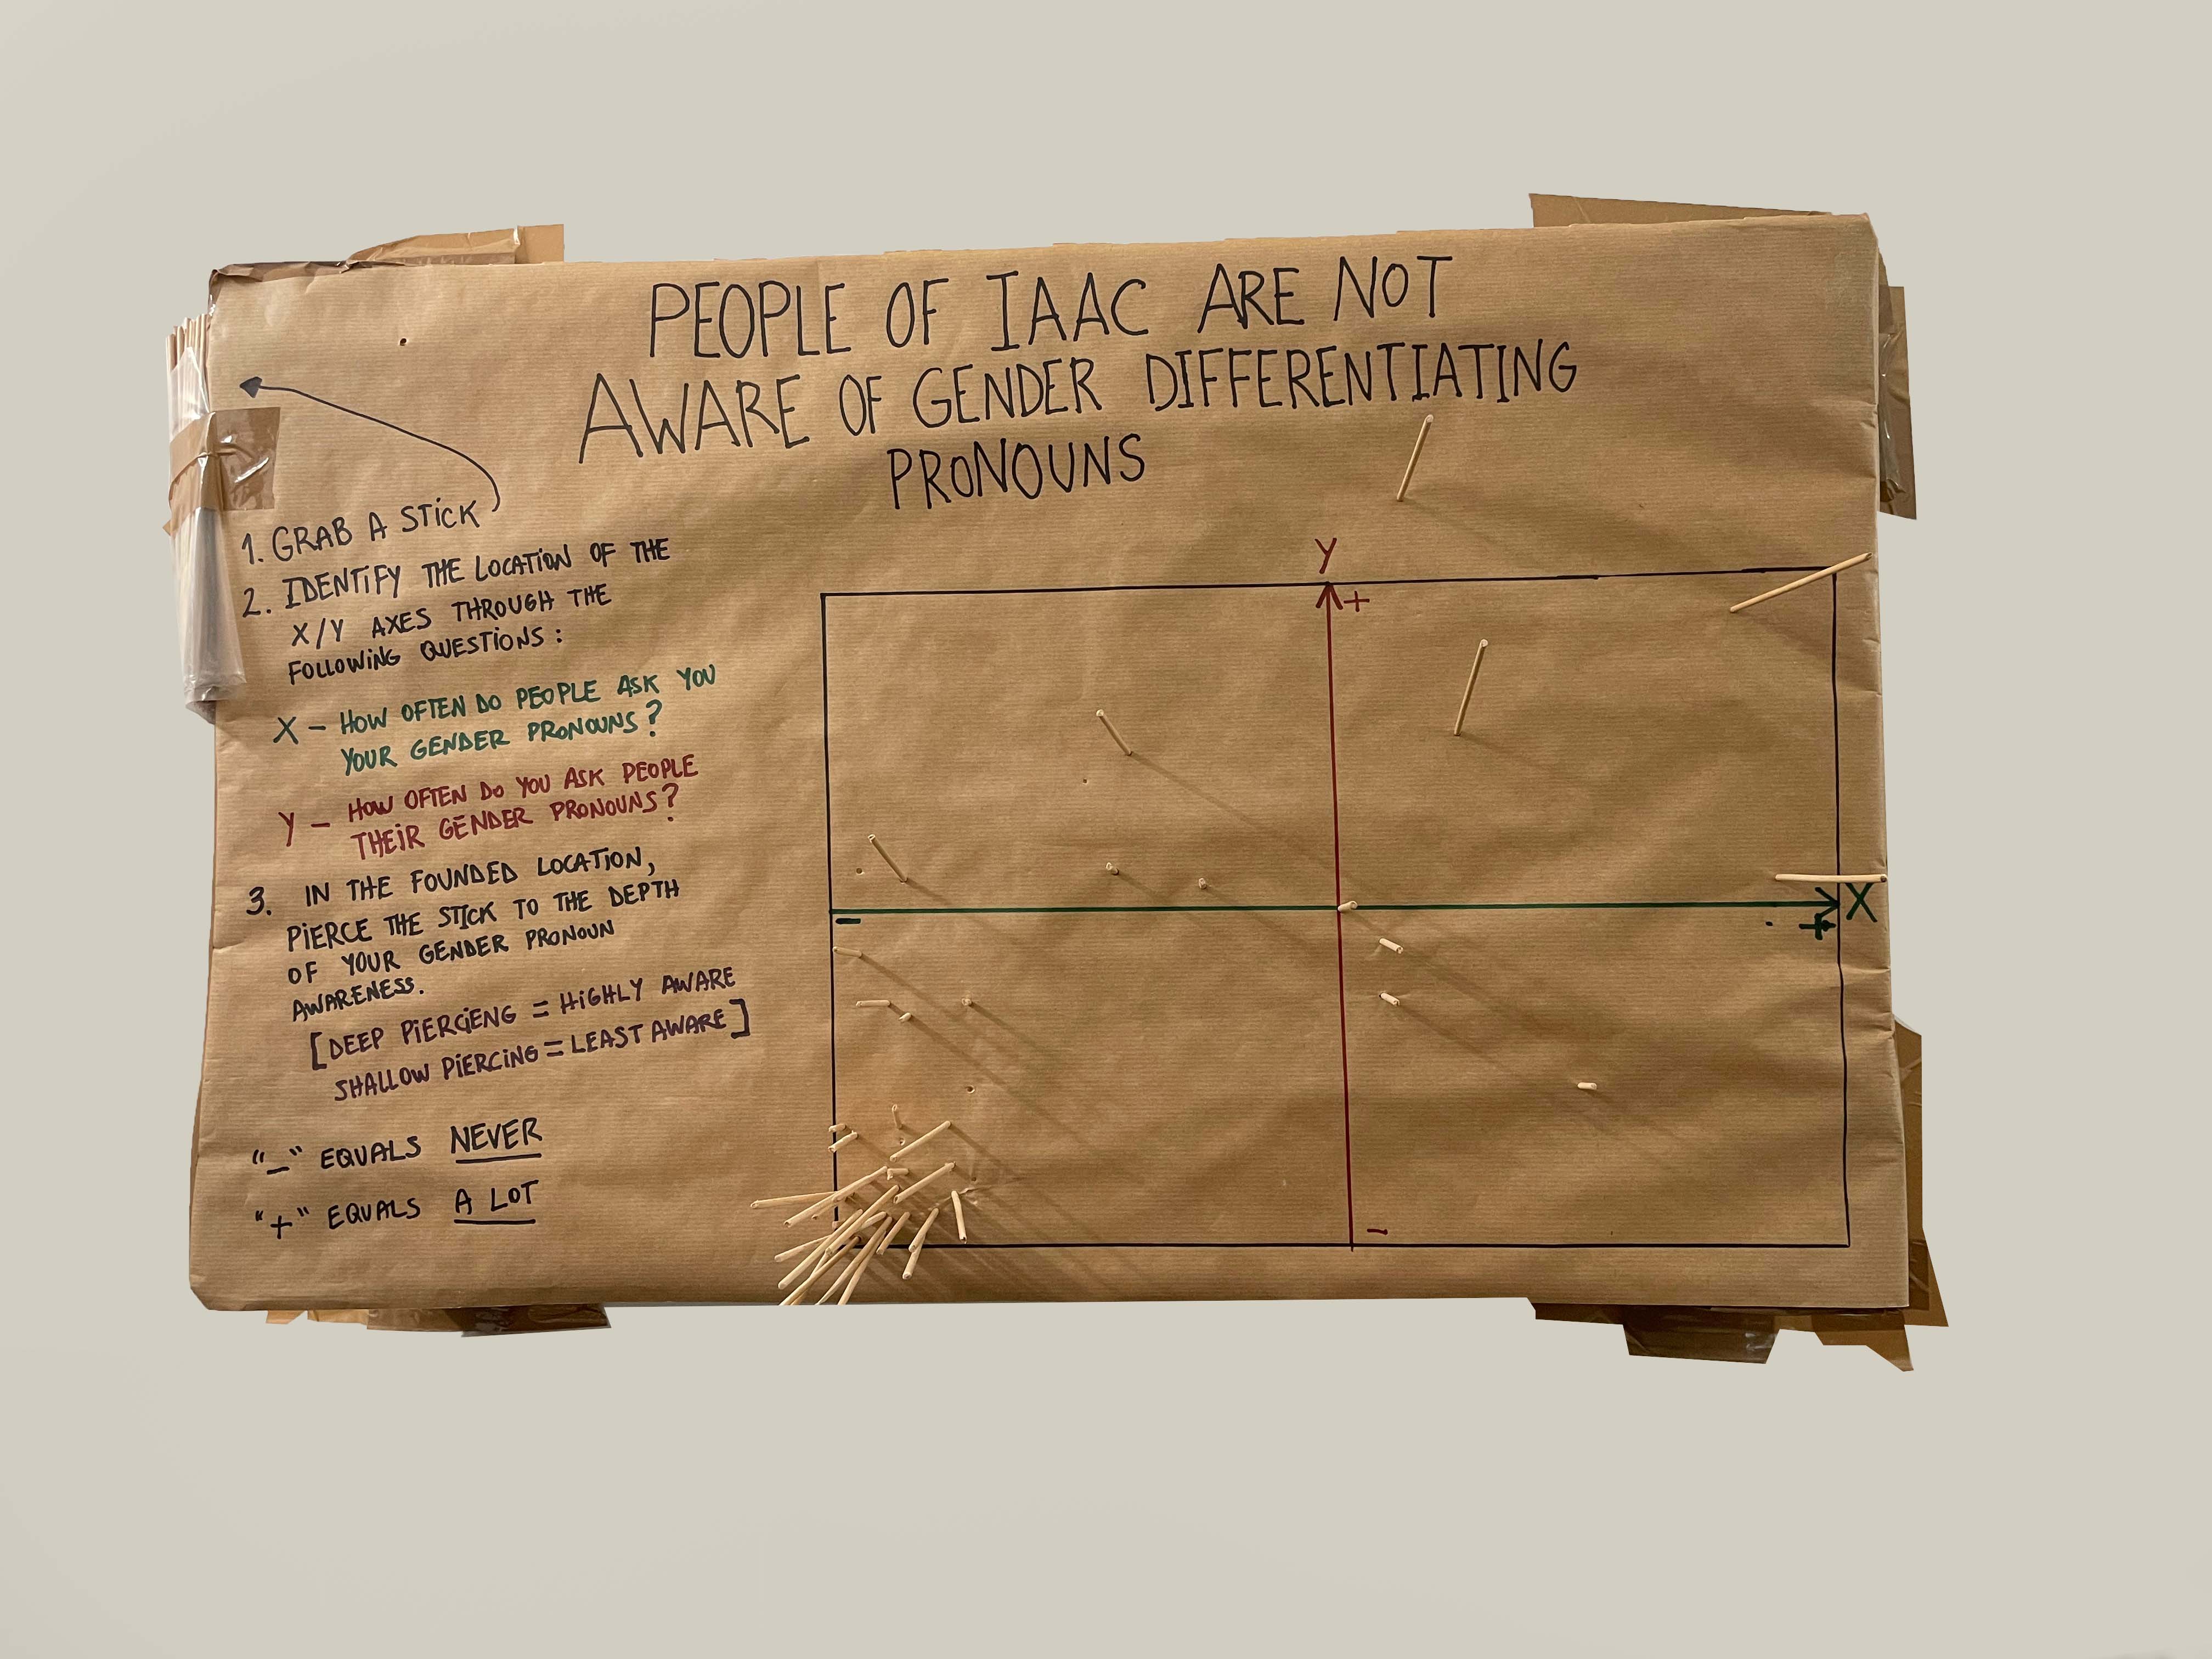 PEOPLE OF IAAC ARE NOT
AWARE OF GENDER DIFFERENTIATING
PRONOUNS
1. GRAB A STICK
2. IDENTIFY THE LOCATION OF THE
X/Y AXES THROUGH THE
FOLLOWING QUESTIONS:
X – HOW OFTEN DO PEOPLE ASK YOU
YOUR GENDER PRONOUNS?
Y – HOW OFTEN DO YOU ASK PEOPLE
THEIR GENDER PRONOUNS?
3. IN THE FOUNDED LOCATION,
PIERCE THE STICK TO THE DEPTH
OF YOUR GENDER PRONOUN
AWARENESS.
[DEEP PIERCIENG = HIGHLY AWARE
SHALLOW PIERCING = LEAST AWARE]
"–" EQUALS NEVER
"+" EQUALS A LOT
Y
+
–
X
+
–